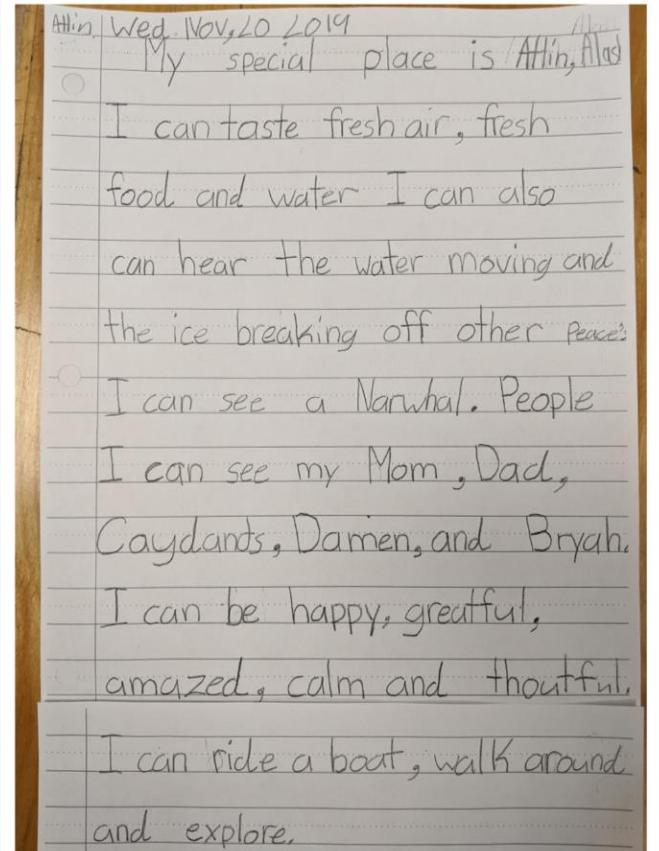 Atlin, Wed, Nov, 20 2019
My special place is Atlin, Alas
I can taste fresh air, fresh
food and water I can also
can hear the water moving and
the ice breaking off other Peace's
I can see a Narwhal. People
I can see my Mom, Dad,
Caydants, Damien, and Bryah.
I can be happy, greatful,
amazed, calm and thoutful.
I can ride a boat, walk around
and explore.